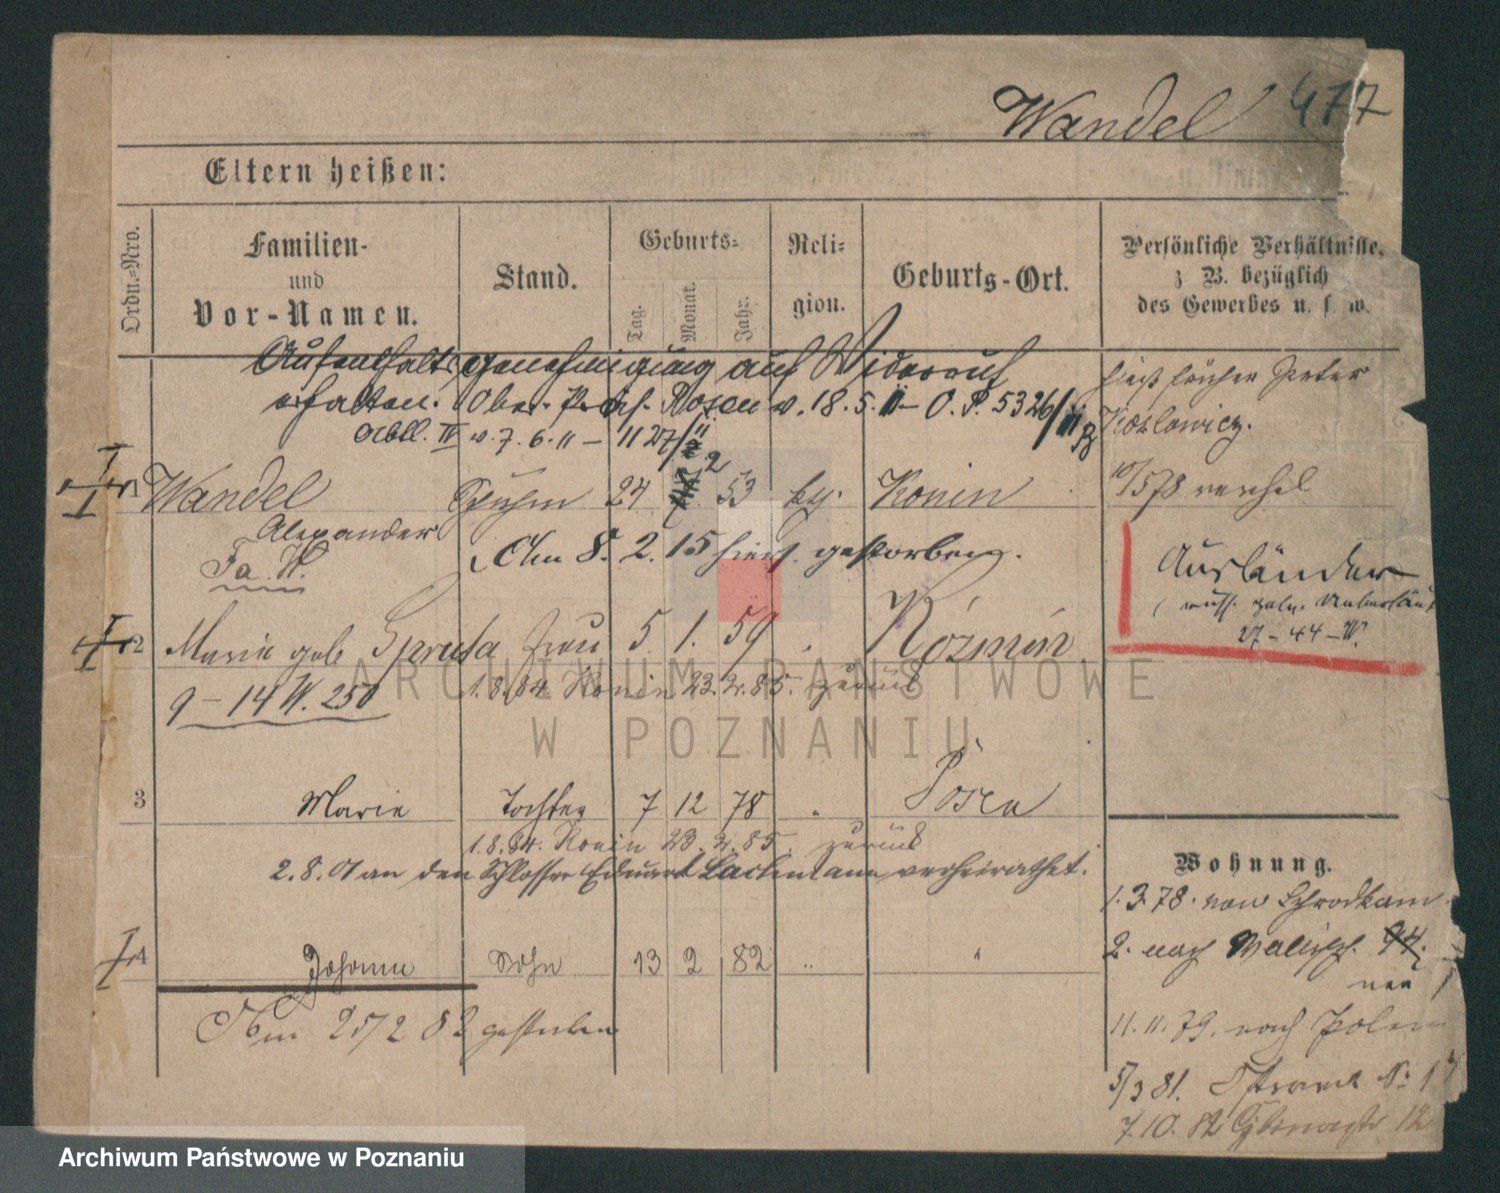 Wandel 477
Eltern heißen:
Ordn.=Nro.
Familien-
und
Vor-Namen.
Stand.
Geburts=
Tag.
Monat.
Jahr.
Reli=
gion.
Geburts-Ort.
Persönliche Verhältnisse,
z B. bezüglich
des Gewerbes u. s. w.
Aufenthaltsgenehmigung auf Widerruf
erhalten. Ober-Präs. Posen v. 18.5.11 – O.P. 5326/11
Abtl. IV v. 7.6.11 – 1127/11
hieß früher Peter
Kozlowicz.
1 Wandel 24 2 53 kth. Konin
Alexander
Am 8. 2. 15 hier gestorben.
Ausländer
27 – 44 – W.
2 Marie geb Spruta Frau 5 1. 59 Kozmin
9 – 14 W. 250
1.8.84. Konin 23.2.85. zurück
3 Marie Tochter 7 12 78 " Posen
1.8.84. Konin 23.2.85. zurück
2.8.01 an den Schlosser Eduard Lachmann verheirathet.
4 Johann Sohn 13 2 82 " "
Am 25/2 82 gestorben
Wohnung.
1.3.78. von Schrodkam
2. nach Wallisch.
neu
11.11.79. nach Polen
5/3 81. Ostrowek No 1
7.10.82 12
ARCHIWUM PAŃSTWOWE
W POZNANIU
Archiwum Państwowe w Poznaniu